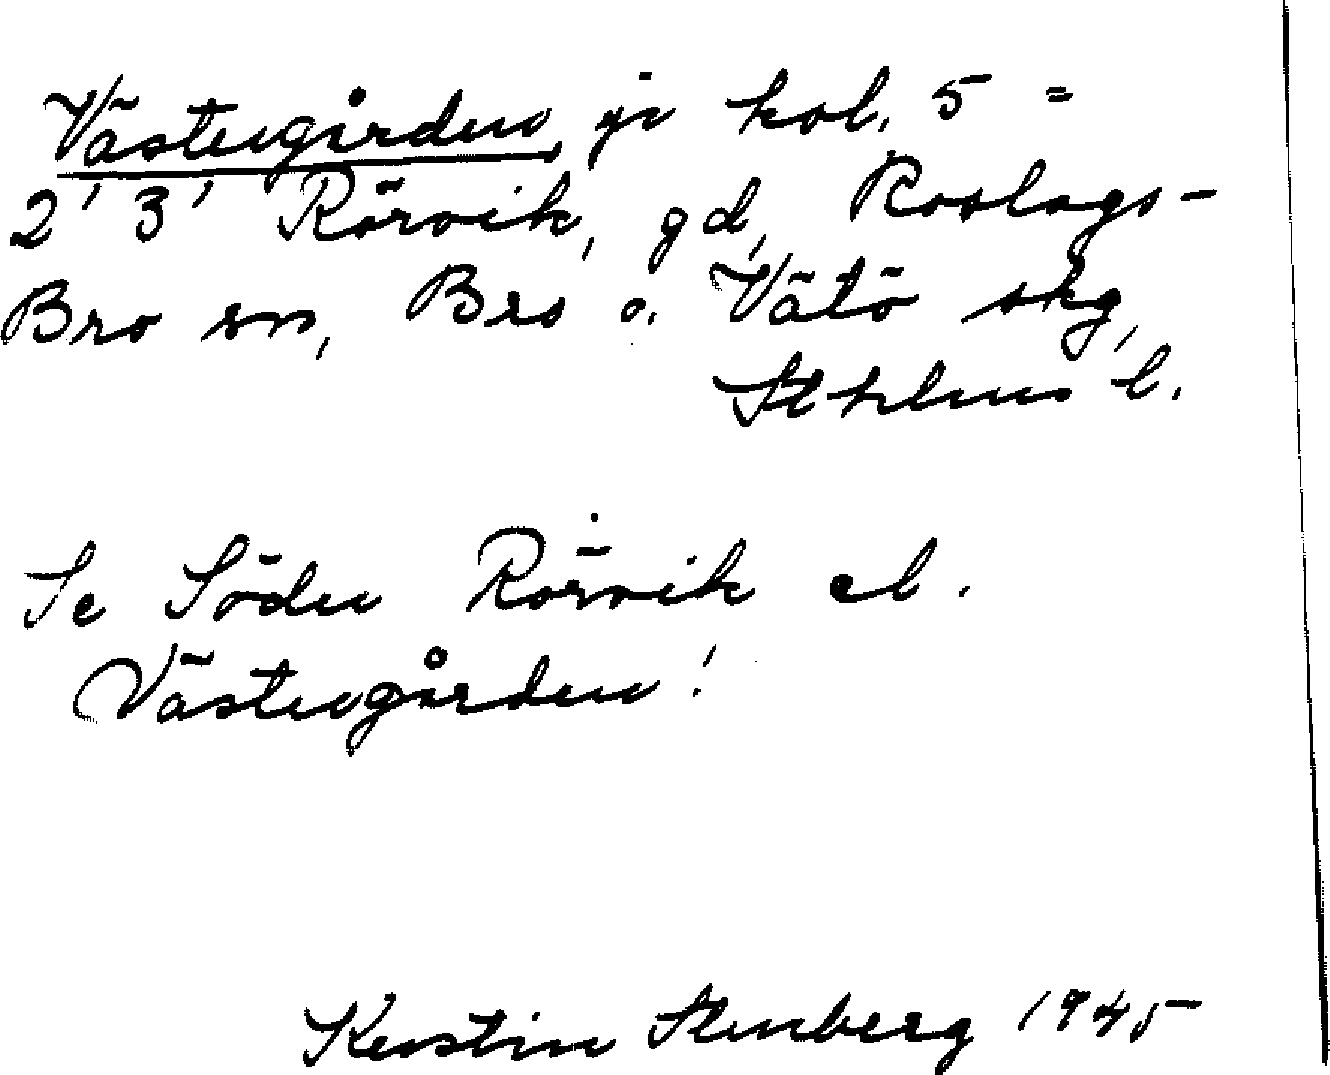 Västergården, jr kol. 5 =
2' 3' Rörvik, gd, Roslags-
Bro sn, Bro o. Vätö skg,
Sthlms l.
Se Söder Rörvik el.
Västergården!
Kerstin Stenberg 1945